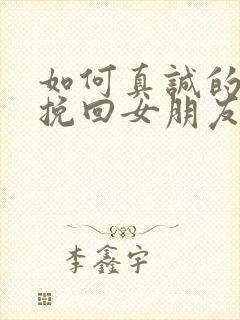 如何真誠的
挽回女朋友
李鑫宇